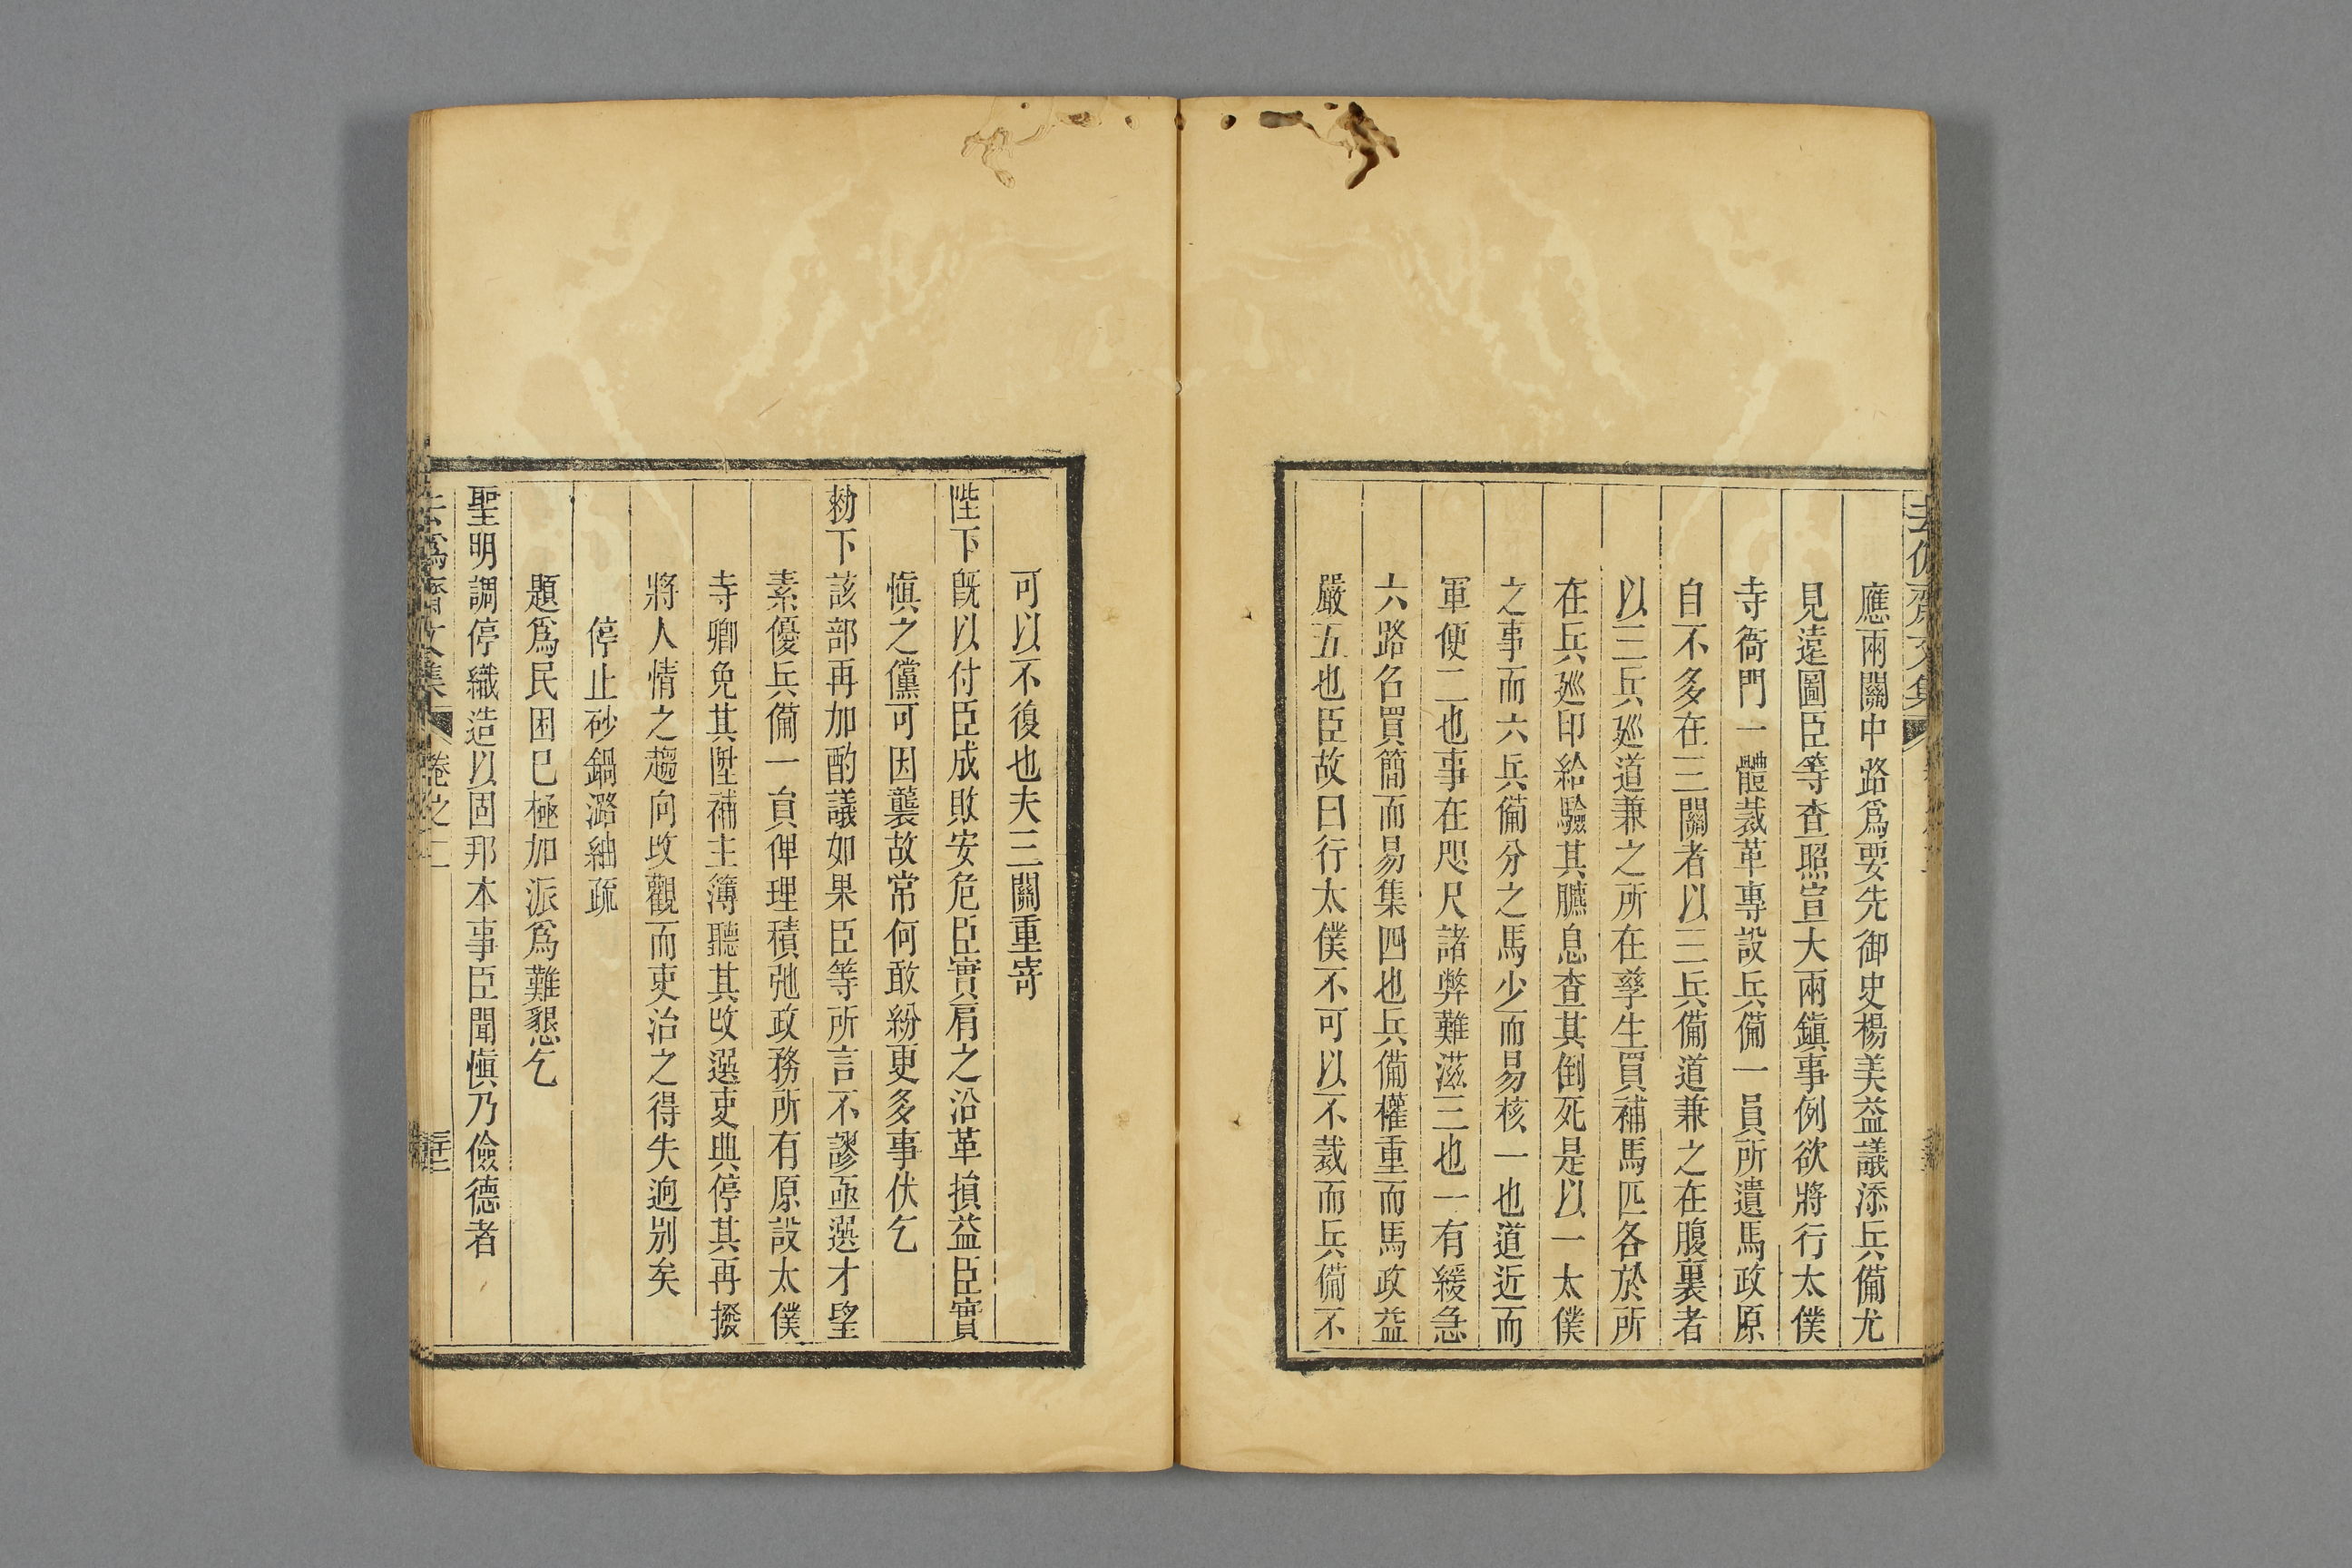 應兩關中路爲要先御史楊美益議添兵備尤
見遠圖臣等查照宣大兩鎮事例欲將行太僕
寺衙門一體裁革專設兵備一員所遺馬政原
自不多在三關者以三兵備道兼之在腹裏者
以三兵廵道兼之所在孳生買補馬匹各於所
在兵廵印給驗其臕息查其倒死是以一太僕
之事而六兵備分之馬少而易核一也道近而
軍便二也事在咫尺諸弊難滋三也一有緩急
六路名買簡而易集四也兵備權重而馬政益
嚴五也臣故曰行太僕不可以不裁而兵備不
可以不復也夫三關重寄
陛下既以付臣成敗安危臣實肩之沿革損益臣實
愼之儻可因襲故常何敢紛更多事伏乞
勑下該部再加酌議如果臣等所言不謬亟選才望
素優兵備一員俾理積弛政務所有原設太僕
寺卿免其陞補主簿聽其改選吏典停其再撥
將人情之趨向改觀而吏治之得失逈别矣
停止砂鍋潞紬疏
題爲民困巳極加派爲難懇乞
聖明調停織造以固邦本事臣聞愼乃儉德者
去僞齋文集 卷之二